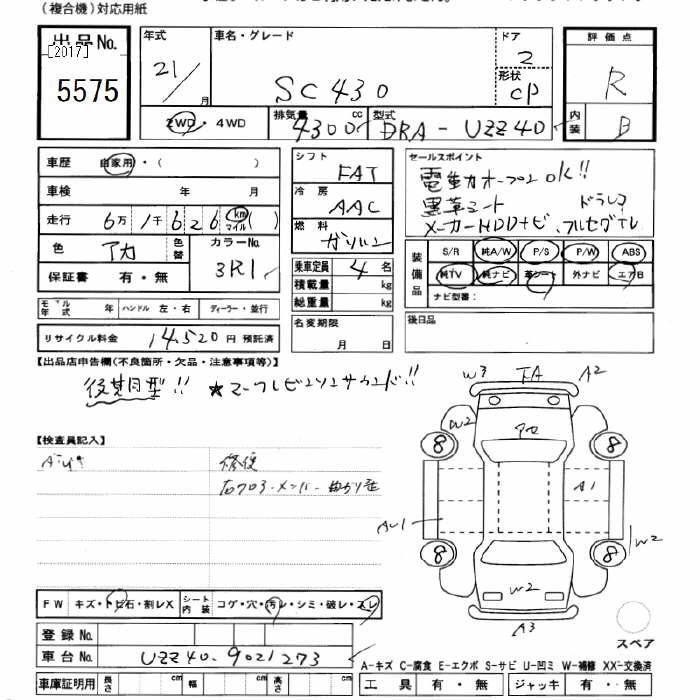 (複合機)対応用紙
出品No.
[2017]
5575
年式
21/
月
車名・グレード
SC430
ドア
2
形状
CP
評価点
R
内装
B
2WD・4WD
排気量
4300
cc
型式
DBA-UZZ40
車歴
自家用・( )
車検
年 月 日
走行
6万1千626
km
マイル
( )
色
アカ
色替
カラーNo.
3R1
保証書 有・無
シフト
FAT
冷房
AAC
燃料
ガソリン
乗車定員 4 名
積載量 kg
総重量 kg
セールスポイント
電動オープンOK!!
黒革シート ドラレコ
メーカーHDDナビ、フルセグTV
装備品
S/R 純A/W P/S P/W ABS
純TV 純ナビ 革シート 外ナビ エアB
ナビ型番:
モデル年式 年 ハンドル 左・右 ディーラー・並行
リサイクル料金 14,520円 預託済
名変期限
月 日
後日品
【出品店申告欄(不良箇所・欠品・注意事項等)】
後期型!! ★マークレビンソンサウンド!!
【検査員記入】
修復
W3 FA A2
W2
8 8
A1
AU1
W2
8 8
W2
A3
スペア
FW キズ・トビ石・割レX シート内装 コゲ・穴・汚レ・シミ・破レ・スレ
登録No.
車台No. UZZ40-9021273
車庫証明用 長さ cm 幅 cm 高さ cm
A-キズ C-腐食 E-エクボ S-サビ U-凹ミ W-補修 XX-交換済
工具 有・無 ジャッキ 有・無